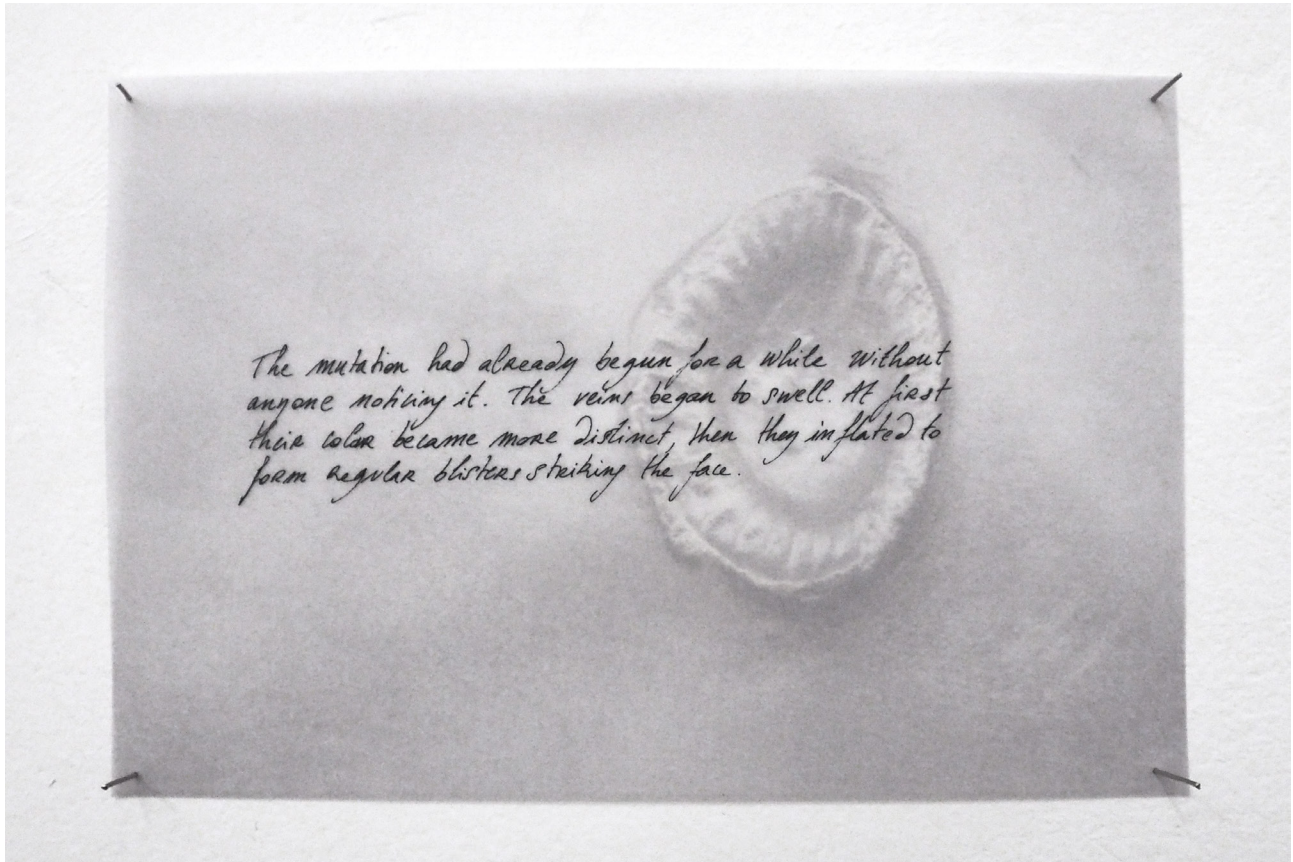 The mutation had already begun for a while without
anyone noticing it. The veins began to swell. At first
their color became more distinct, then they inflated to
form regular blisters striking the face.